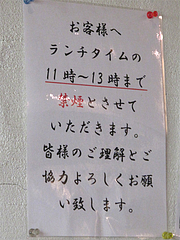 お客様へ
ランチタイムの
11時～13時まで
禁煙とさせて
いただきます。
皆様のご理解とご
協力よろしくお願
い致します。